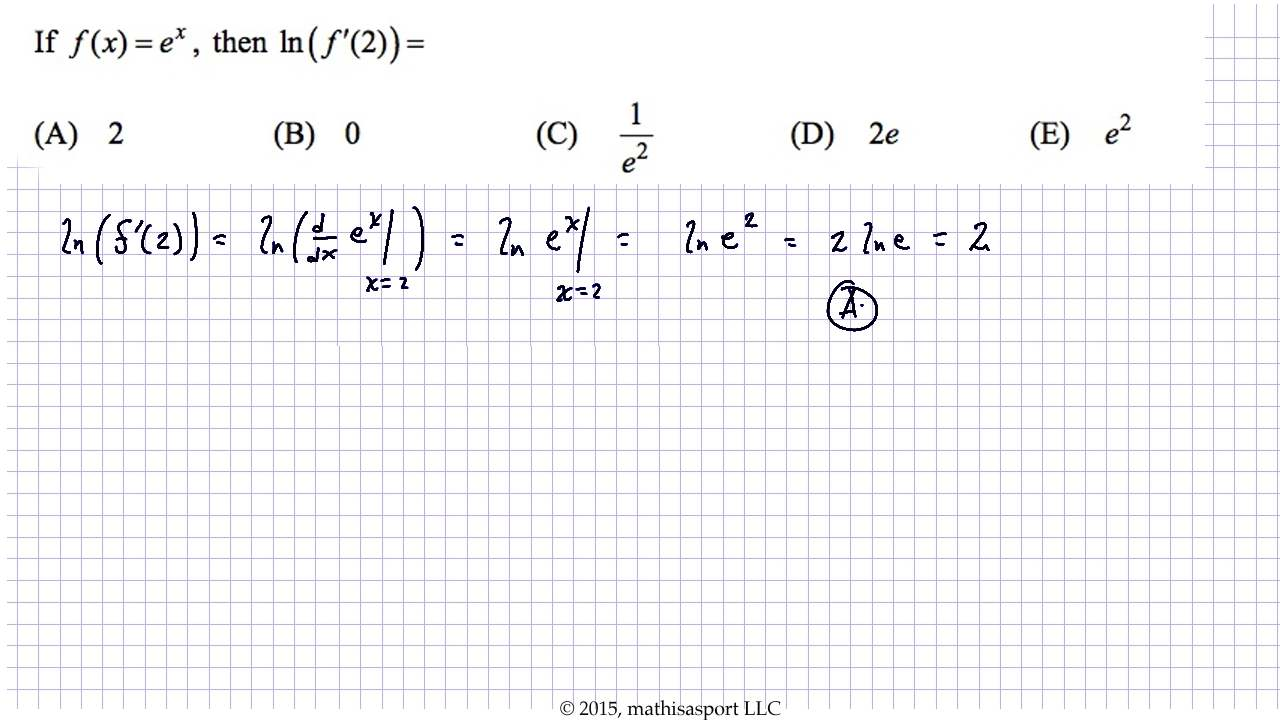 If f(x) = e^x, then ln(f'(2)) =
(A) 2 (B) 0 (C) 1/e^2 (D) 2e (E) e^2
ln(f'(2)) = ln(d/dx e^x|x=2) = ln e^x|x=2 = ln e^2 = 2 ln e = 2
A.
© 2015, mathisasport LLC